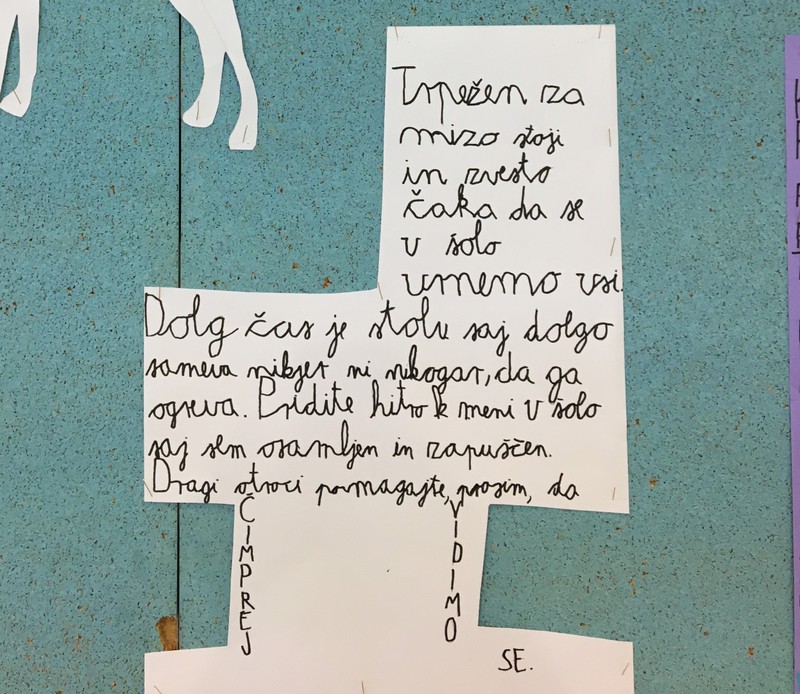 Trpežen za
mizo stoji
in zvesto
čaka da se
v šolo
vrnemo vsi.
Dolg čas je stolu saj dolgo
sameva nikjer ni nikogar, da ga
ogreva. Pridite hitro k meni v šolo
saj sem osamljen in zapuščen.
Dragi otroci pomagajte, prosim, da
ČIMPREJ
VIDIMO
SE.